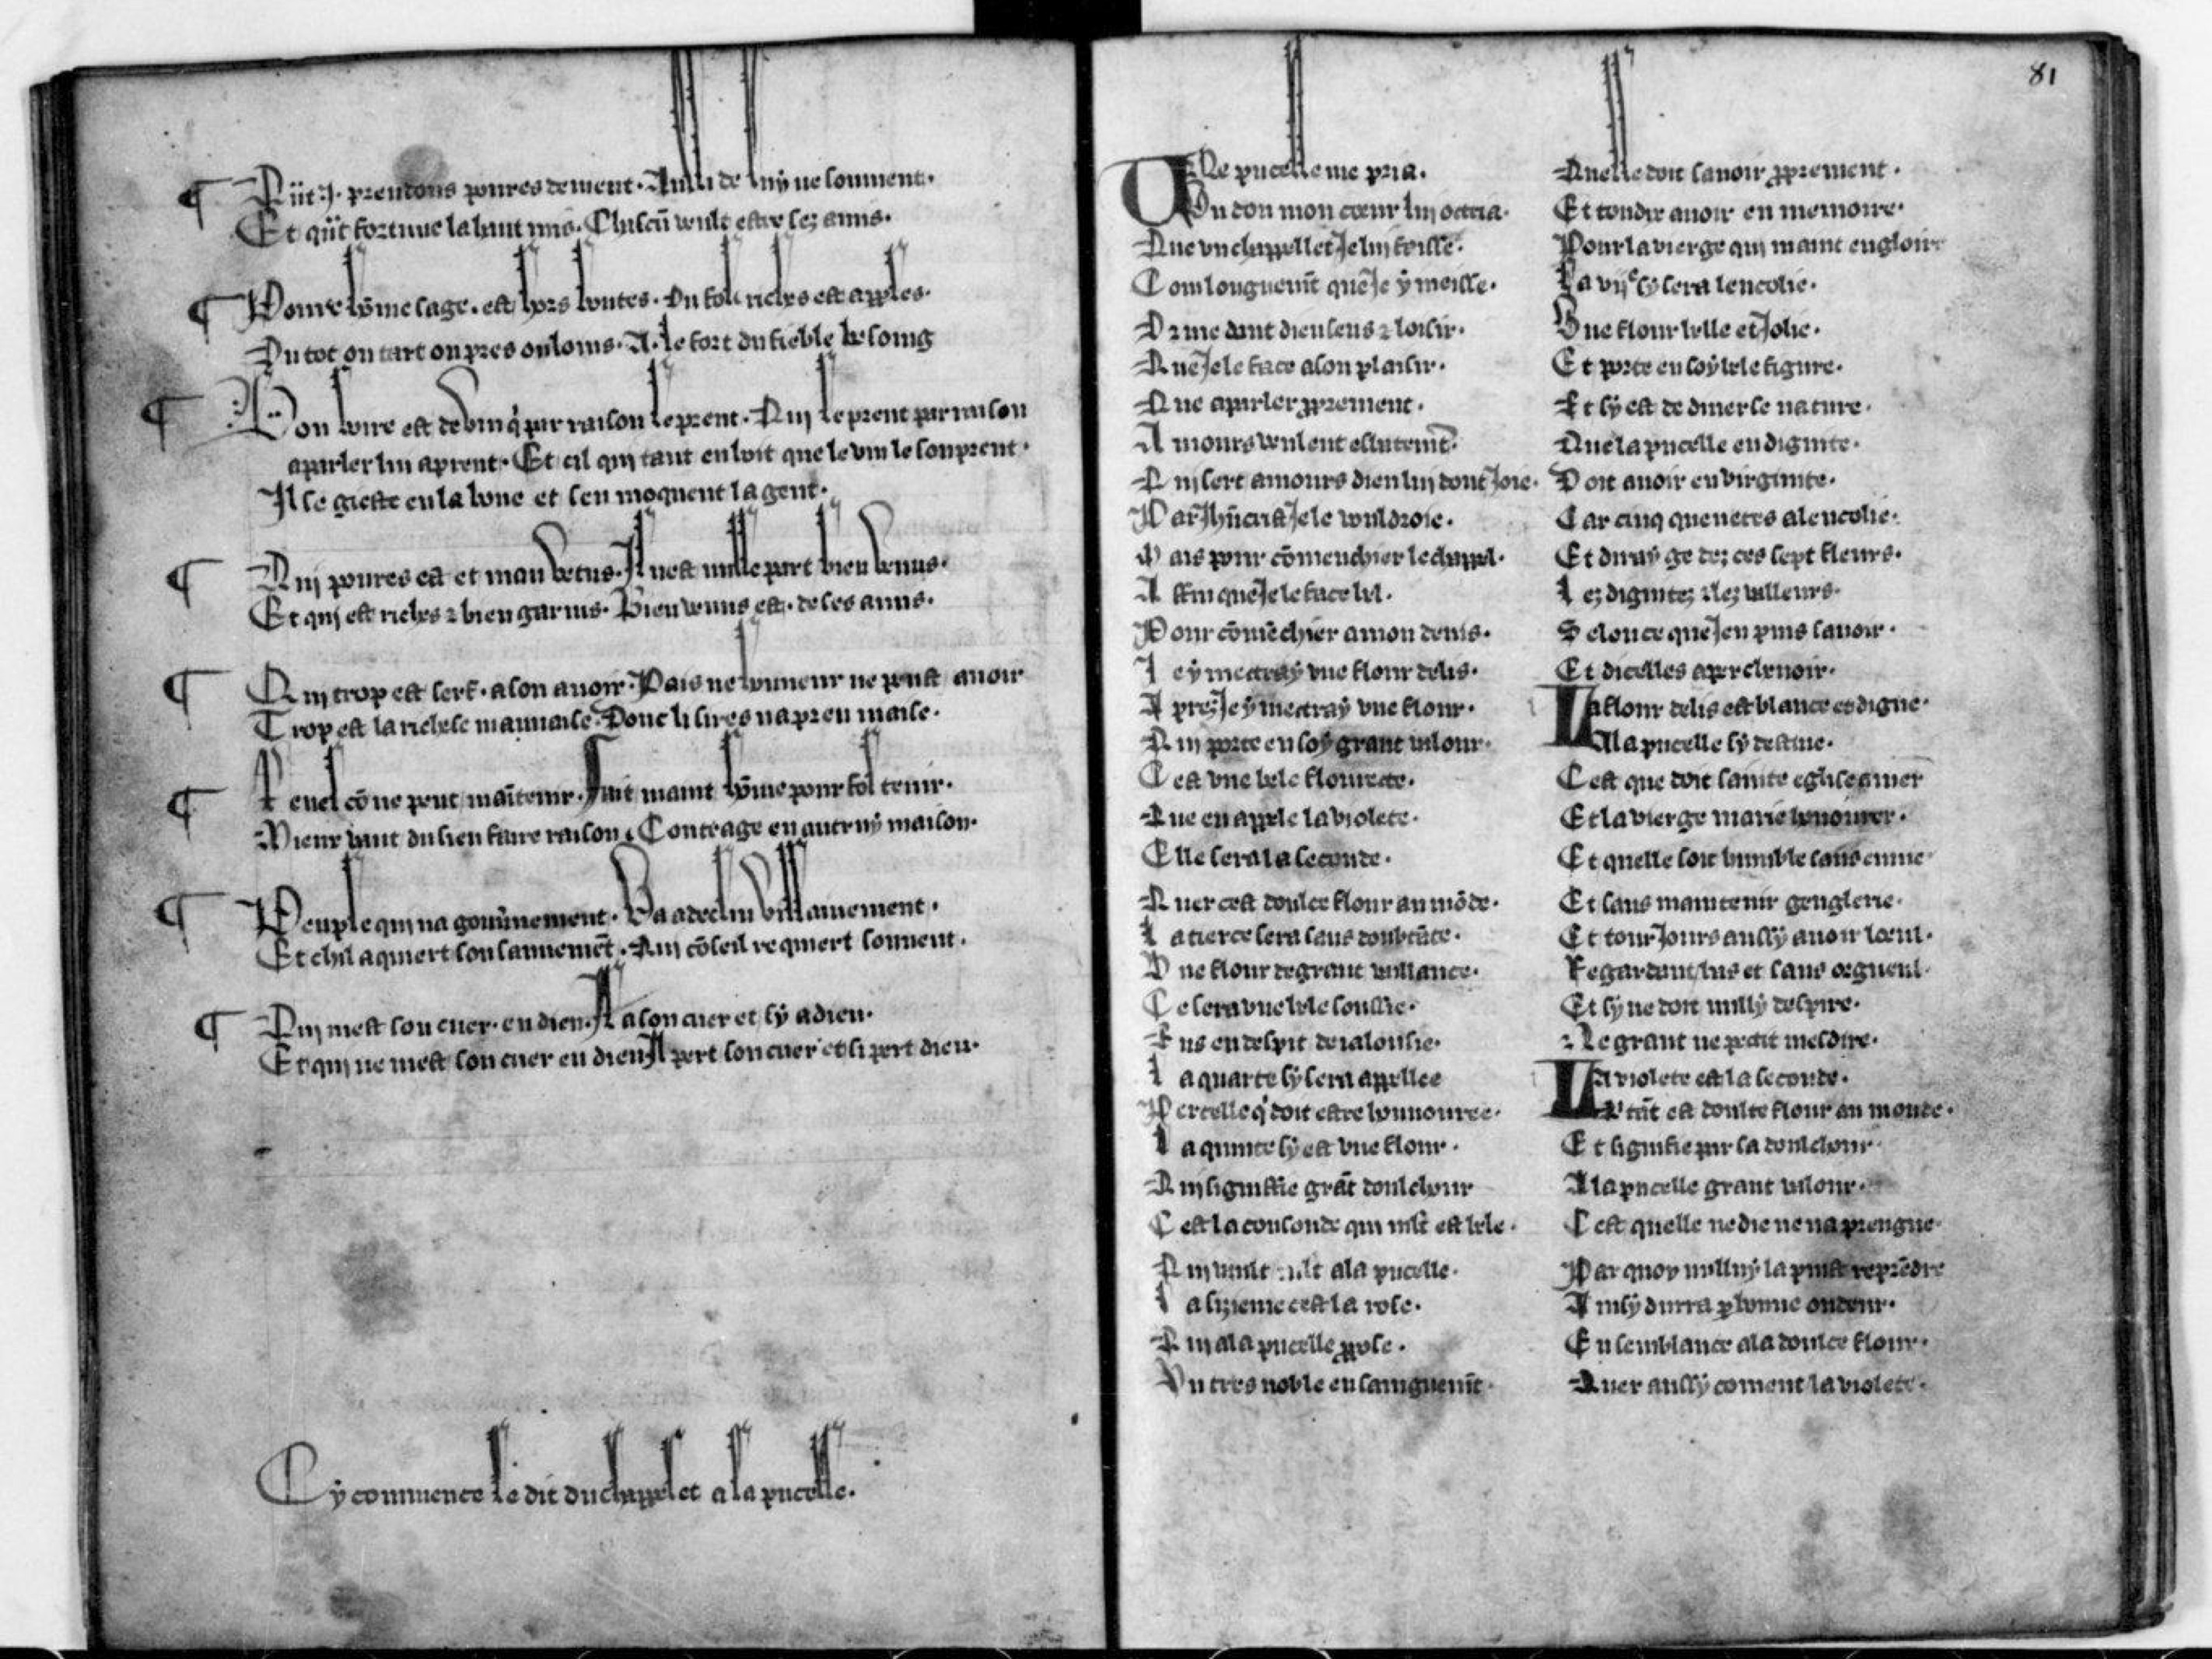 ¶ Qūt .I. preudons poures deuient. Nului de luy ne souuient.
Et qūt fortune la haut mis. Chascū veult estre sez amis.
¶ Poure hōme sage. est hors boutes. Du fol riches est apples.
Du tot ou tart ou pres ou loins. A. le fort du fieble besoing
¶ Bon boire est de vin q̇ par raison le prent. Qui le prent par raison
a parler lui aprent. Et cil qui tant en boit que le vin le souprent.
Il se gieste en la boue et sen moquent la gent.
¶ Qui poures est et mau vetus. Il nest nulle part bien venus.
Et qui est riches ⁊ bien garnis. Bien venus est. de ses amis.
¶ Qui trop est serf. a son auoir. Pais ne honneur ne peust auoir
Trop est la richese mauuaise. Donc li sires na preu maise.
¶ Reuel cō ne peut maītenir. Fait maint hōme pour fol tenir.
Mieux vaut du sien faire raison. Contrage en autruy maison.
¶ Peuple qui na gouūnement. Va a declin villainement.
Et chil aquiert son sauuemēt. Qui cōseil requiert souuent.
¶ Qui mest son cuer. en dieu. Il a son cuer et sy a dieu.
Et qui ne mest son cuer en dieu Il pert son cuer et si pert dieu.
Cy commence le dit du chappelet a la pucelle.
81
Vne pucelle me pria.
Vn don mon cœur luy octria.
Que vn chappellet Je luy feisse.
Com longuemt̄ que Je y meisse.
Or me dont dieu sens ⁊ loisir.
Que Je le face a son plaisir.
Que a parler ꝓprement.
Amours veulent esbatemt̄.
Qui sert amours dieu lui dont Joie.
Par Jhūcrist Je le vouldroie.
Mais pour cōmenchier le chappel.
Affin que Je le face bel.
Pour cōmēchier a mon deuis.
Je y mectray vne flour de lis.
Apres Je y mectray vne flour.
Qui porte en soy grant valour.
Cest vne bele flourecte.
Que en apele la violete.
Elle sera la seconde.
Quer cest doulce flour au mōde.
La tierce sera sans doubtāce.
Vne flour de grant vaillance.
Ce sera vne bele soussie.
Fus en despit de ialousie.
La quarte sy sera apellee
Percelle q̇ doit estre honnouree.
La quinte sy est vne flour.
Qui signiffie grāt doulchour
Cest la consoude qui mlt̄ est bele.
Qui vault mlt ala pucelle.
La sixieme cest la rose.
Qui ala pucelle ꝓpose.
Vn tres noble ensaignemt̄.
Quelle doit sauoir ꝓprement.
Et toudix auoir en memoire.
Pour la vierge qui maint en gloire
La vijᵉ sy sera lencolie.
Vne flour belle et Jolie.
Et porte en soy bele figure.
Et sy est de diuerse nature.
Que la pucelle en dignite.
Doit auoir en virginite.
Car cinq quenetes a lencolie.
Et diray ge dez ces sept fleurs.
Lez dignitez ⁊ lez valleurs.
Selon ce que Jen puis sauoir.
Et dicelles aperchenoir.
La flour de lis est blance et digne.
A la pucelle sy destine.
Cest que doit sainte eglise amer
Et la vierge marie honnourer.
Et quelle soit humble sans enuie
Et sans maintenir genglerie.
Et tour Jours aussy auoir lœul.
Regardant bas et sans orgueul.
Et sy ne doit nully despire.
Ne grant ne petit mesdire.
La violete est la seconde.
Tāt est doulce flour au monde.
Et signifie par sa doulchour
A la pucelle grant valour.
Cest quelle ne die ne naprengne.
Par quoy nulluy la puist reprēdre
Ainsy durra ꝑ bonne oudeur.
En semblance a la doulce flour.
Quer aussy coment la violete.